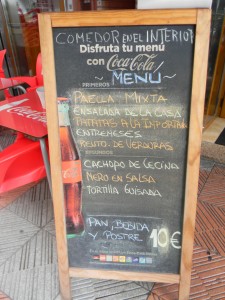 COMEDOR EN EL INTERIOR
Disfruta tu menú
con Coca-Cola
~ MENU ~
PRIMEROS
PAELLA MIXTA
ENSALADA DE LA CASA
PATATAS A LA IMPORTAN
ENTREMESES
REVTO. DE VERDURAS
SEGUNDOS
CACHOPO DE CECINA
MERO EN SALSA
TORTILLA GUISADA
PAN, BEBIDA
Y POSTRE 10€